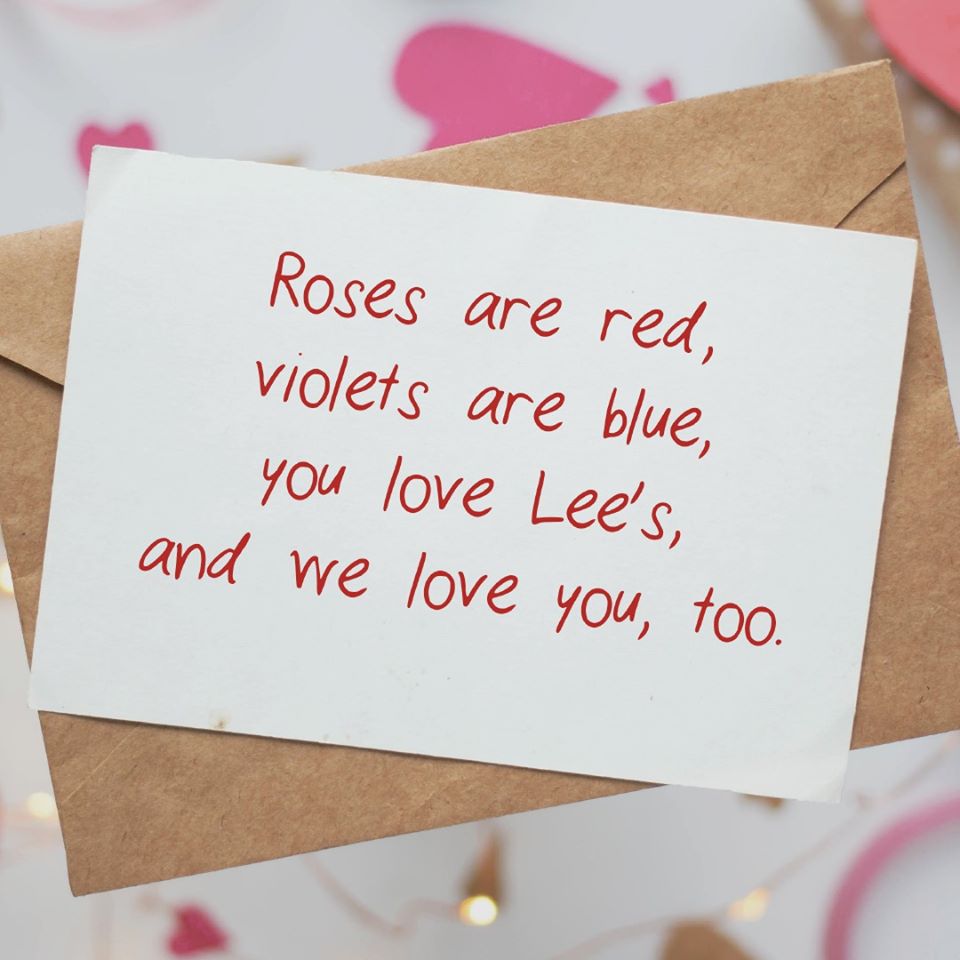 Roses are red,
violets are blue,
you love Lee's,
and we love you, too.